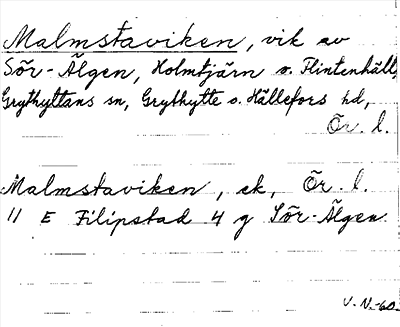 Malmstaviken, vik av
Sör-Älgen, Holmtjärn o. Flintenhäll,
Grythyttans sn, Grythytte o. Hällefors hd,
Ör. l.
Malmstaviken, ek, Ör. l.
11 E Filipstad 4 g Sör-Älgen
V. N. -60